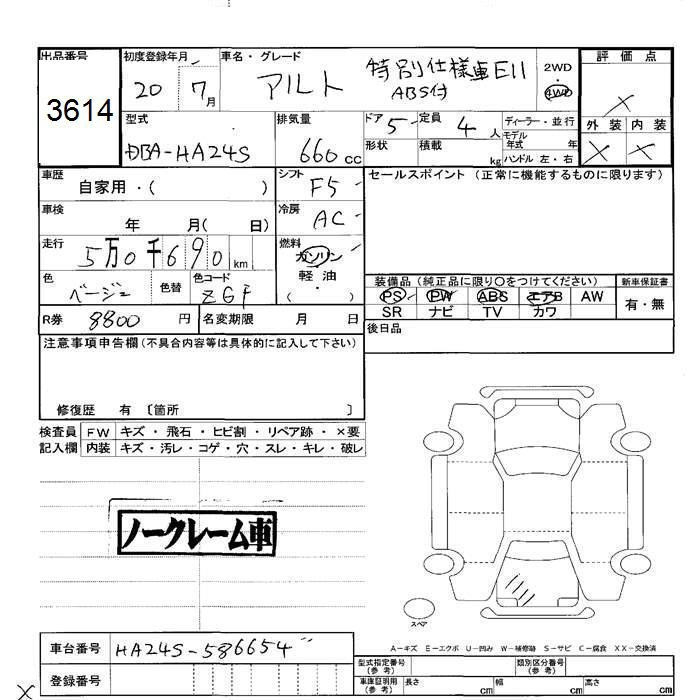 出品番号 初度登録年月 車名・グレード 評価点
3614 20 7月 アルト 特別仕様車EII 2WD
ABS付 4WD
×
型式 排気量 ドア 5 定員 4人 ディーラー・並行 外装 内装
DBA-HA24S 660cc 形状 積載 kg モデル年式 年 × ×
ハンドル 左・右
車歴 自家用・( ) シフト F5 セールスポイント(正常に機能するものに限ります)
車検 年 月( 日) 冷房 AC
走行 5万0千690km 燃料 ガソリン
軽・油
( )
色 ベージュ 色替 色コード ZGF 装備品(純正品に限り○をつけてください) 新車保証書
PS PW ABS エアB AW 有・無
SR ナビ TV カワ
R券 8800円 名変期限 月 日 後日品
注意事項申告欄(不具合内容等は具体的に記入して下さい)
修復歴 有 〔箇所 〕
検査員 FW キズ・飛石・ヒビ割・リペア跡・×要
記入欄 内装 キズ・汚レ・コゲ・穴・スレ・キレ・破レ
ノークレーム車
スペア
車台番号 HA24S-586654
A-キズ E-エクボ U-凹み W-補修跡 S-サビ C-腐食 XX-交換済
登録番号
型式指定番号(参考) 類別区分番号(参考)
車庫証明用(参考) 長さ cm 幅 cm 高さ cm
×